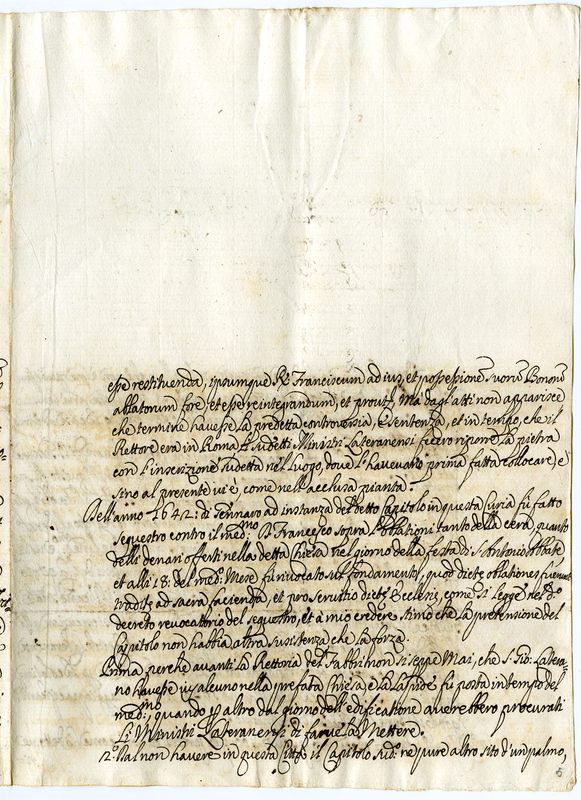 esse restituenda, ipsumque Rd. Franciscum ad ius, et possessione suorũ Bonorũ
ablatorum fore, et esse reintegrandum, et prout. Ma dagl'atti non apparisce
che termine havesse la predetta controversia, è sentenza, et in tempo, che il
Rettore era in Roma li sudetti Ministri Lateranensi fecero riporre la pietra
con l'inscrizione sudetta nel luogo, dove l'havevano prima fatta collocare, e
sino al presente vi è, come nell'acclusa pianta.
Dell'anno 1642: di Gennaro ad instanza del detto Capitolo in questa Curia fù fatto
sequestro contro il medmo. D. Francesco sopra l'oblationi tanto della cera, quanto
delli denari offerti nella detta Chiesa nel giorno della festa di S. Antonio Abbate
et alli 18. del medo. Mese fù rivocato sul fondamento, quod dicte oblationes fuerunt
tradite ad sacra facienda, et pro servitio dicte Ecclesie, come si legge nel do.
decreto revocatorio del sequestro, et à mio credere stimo che la pretensione del
Capitolo non habbia altra susistenza che la forza.
Prima perche avanti la Rettoria del Fabbri non si seppe Mai, che S. Gio: Latera-
no havesse ius alcuno nella prefata Chiesa, e la Lapide fù posta in tempo del
medmo. quando p altro dal giorno dell'edificatione averebbero procurati
Li Ministri Lateranensi di farvela Mettere.
2o. Dal non havere in questa Città il Capitolo sudo. ne pure altro sito d'un palmo,